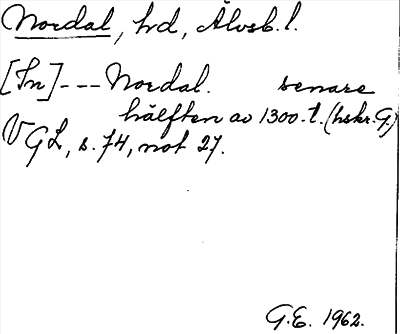 Nordal, hd, Älvsb. l.
[In]---Nordal. senare
hälften av 1300-t. (hskr. G.)
VGL, s. 74, not 27.
G.E. 1962.